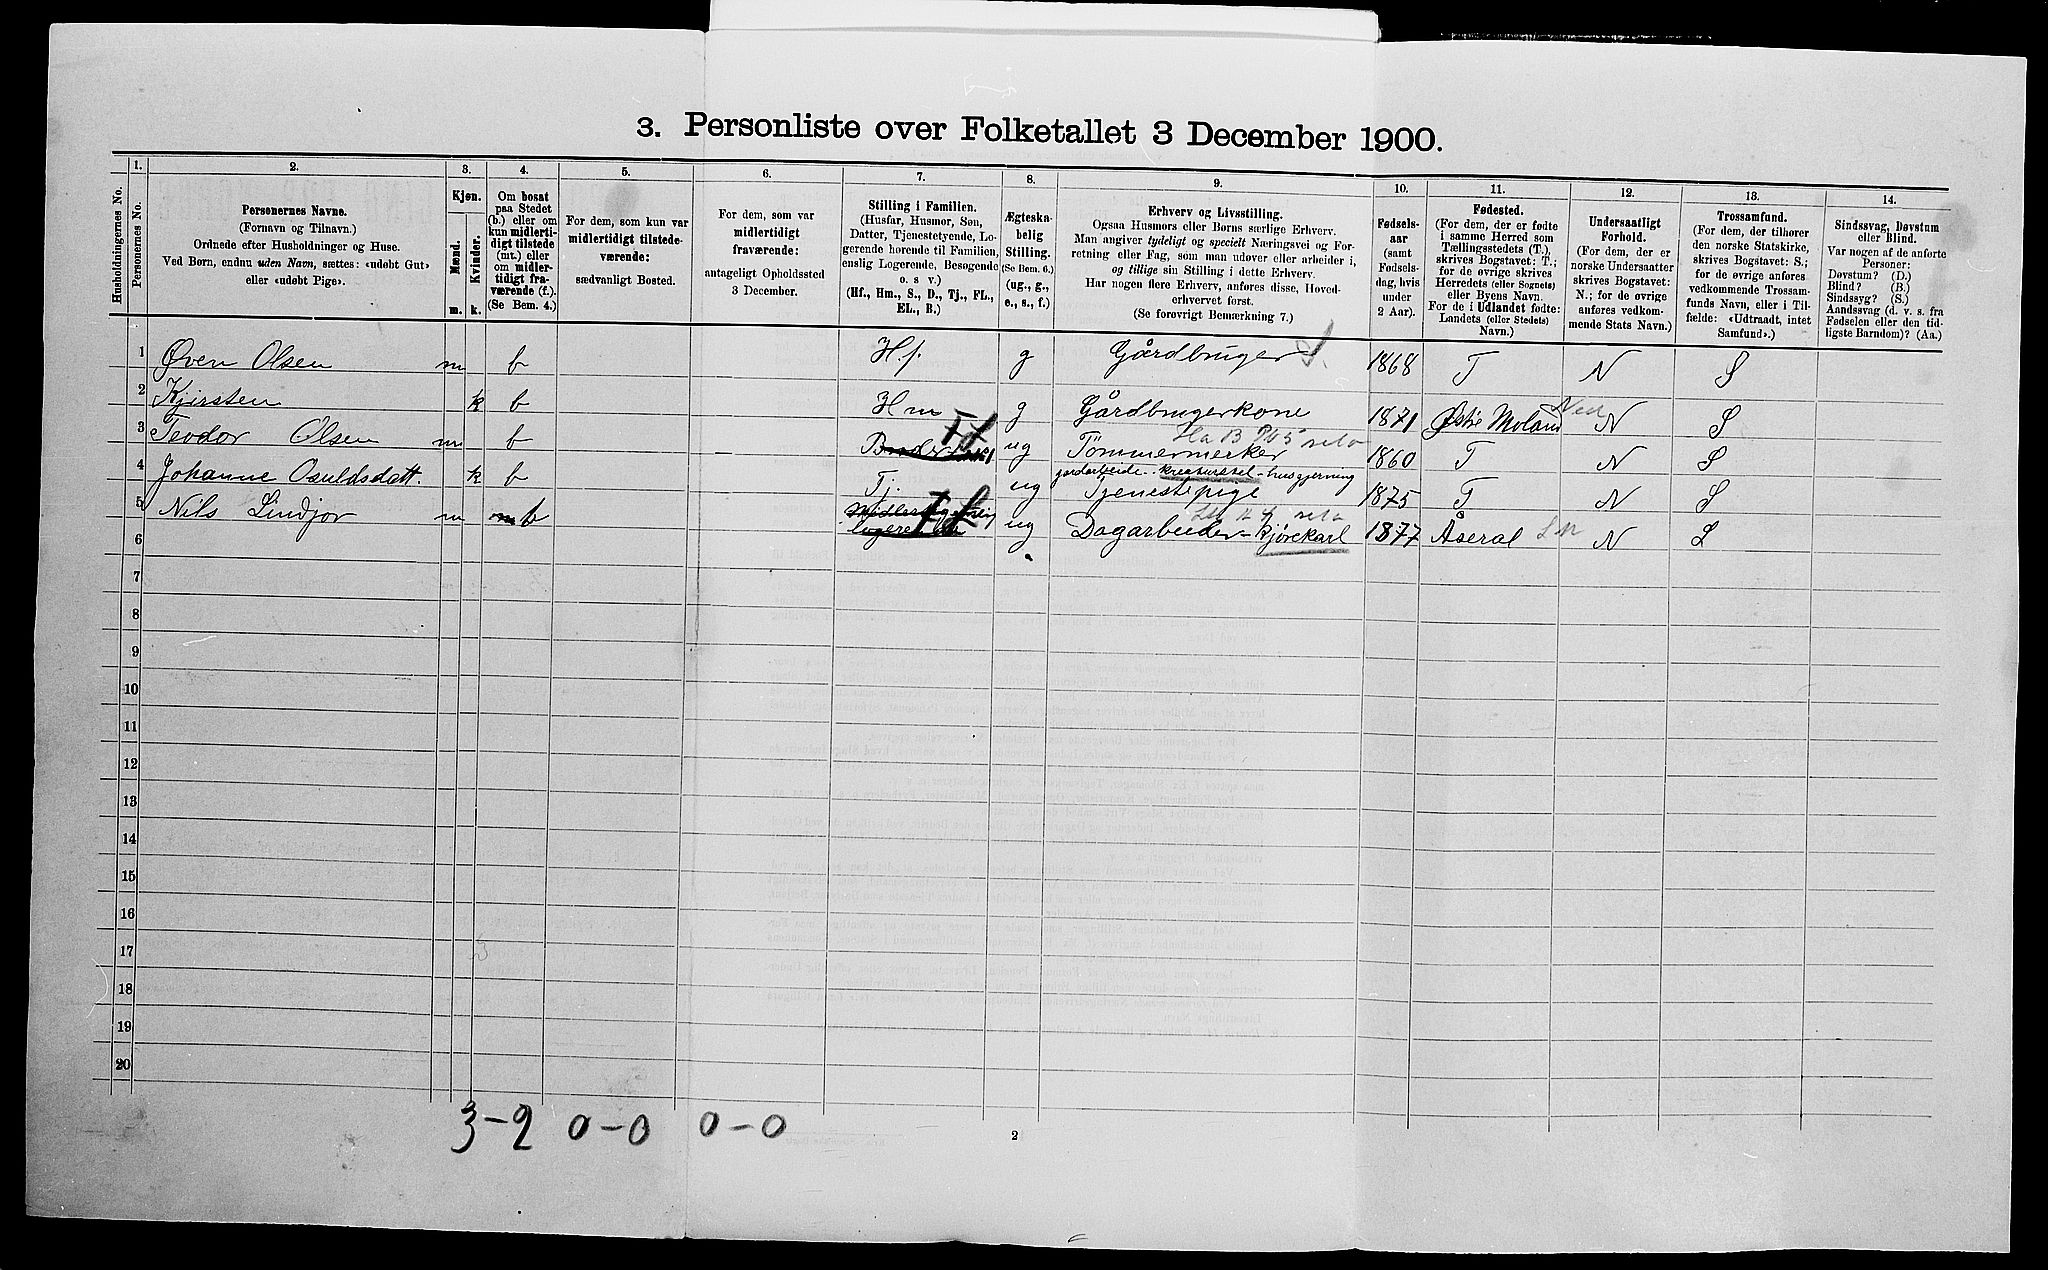 3. Personliste over Folketallet 3 December 1900.
Husholdningernes No.
1.
Personernes No.
2.
Personernes Navne.
(Fornavn og Tilnavn.)
Ordnede efter Husholdninger og Huse.
Ved Børn, endnu uden Navn, sættes: «udøbt Gut»
eller «udøbt Pige».
3.
Kjøn.
Mænd.
Kvinder.
m. k.
4.
Om bosat
paa Stedet
(b.) eller om
kun midlerti-
digt tilstede
(mt.) eller
om midler-
tidigt fra-
værende (f.).
(Se Bem. 4.)
5.
For dem, som kun var
midlertidigt tilstede-
værende:
sædvanligt Bosted.
6.
For dem, som var
midlertidigt
fraværende:
antageligt Opholdssted
3 December.
7.
Stilling i Familien.
(Husfar, Husmor, Søn,
Datter, Tjenestetyende, Lo-
gerende hørende til Familien,
enslig Logerende, Besøgende
o. s v.)
(Hf., Hm., S., D., Tj., FL.,
EL., B.)
8.
Ægteska-
belig
Stilling.
(Se Bem. 6.)
(ug., g.,
e., s., f.)
9.
Erhverv og Livsstilling.
Ogsaa Husmors eller Børns særlige Erhverv.
Man angiver tydeligt og specielt Næringsvei og For-
retning eller Fag, som man udøver eller arbeider i,
og tillige sin Stilling i dette Erhverv.
Har nogen flere Erhverv, anføres disse, Hoved-
erhvervet først.
(Se forøvrigt Bemærkning 7.)
10.
Fødsels-
aar
(samt
Fødsels-
dag, hvis
under
2 Aar).
11.
Fødested.
(For dem, der er fødte
i samme Herred som
Tællingsstedets (T.),
skrives Bogstavet: T.;
for de øvrige skrives
Herredets (eller Sognets)
eller Byens Navn.
For de i Udlandet fødte:
Landets (eller Stedets)
Navn.)
12.
Undersaatligt
Forhold.
(For dem, der er
norske Undersaatter
skrives Bogstavet:
N.; for de øvrige
anføres vedkom-
mende Stats Navn.)
13.
Trossamfund.
(For dem, der tilhører
den norske Statskirke,
skrives Bogstavet: S.;
for de øvrige anføres
vedkommende Trossam-
funds Navn, eller i Til-
fælde: «Udtraadt, intet
Samfund».)
14.
Sindssvag, Døvstum
eller Blind.
Var nogen af de anførte
Personer:
Døvstum? (D.)
Blind? (B.)
Sindssyg? (S.)
Aandssvag (d. v. s. fra
Fødselen eller den tid-
ligste Barndom)? (Aa.)
1 Øven Olsen m b H.f. g Gårdbruger S. 1868 T N S
2 Kjirsten k b Hm g Gårdbrugerkone 1871 Østre Moland Ned N S
3 Teodor Olsen m b FL ug Tömmermerker 1860 T N S
4 Johanne Osuldsdatt. k b Tj. ug jordarbeide - kreaturstel - husgjerning
Tjenestepige 1875 T N S
5 Nils Lindjor m b FL ug Dagarbeider - kjørekarl 1877 Åseral N S
6
7
8
9
10
11
12
13
14
15
16
17
18
19
20
3-2 0-0 0-0
2